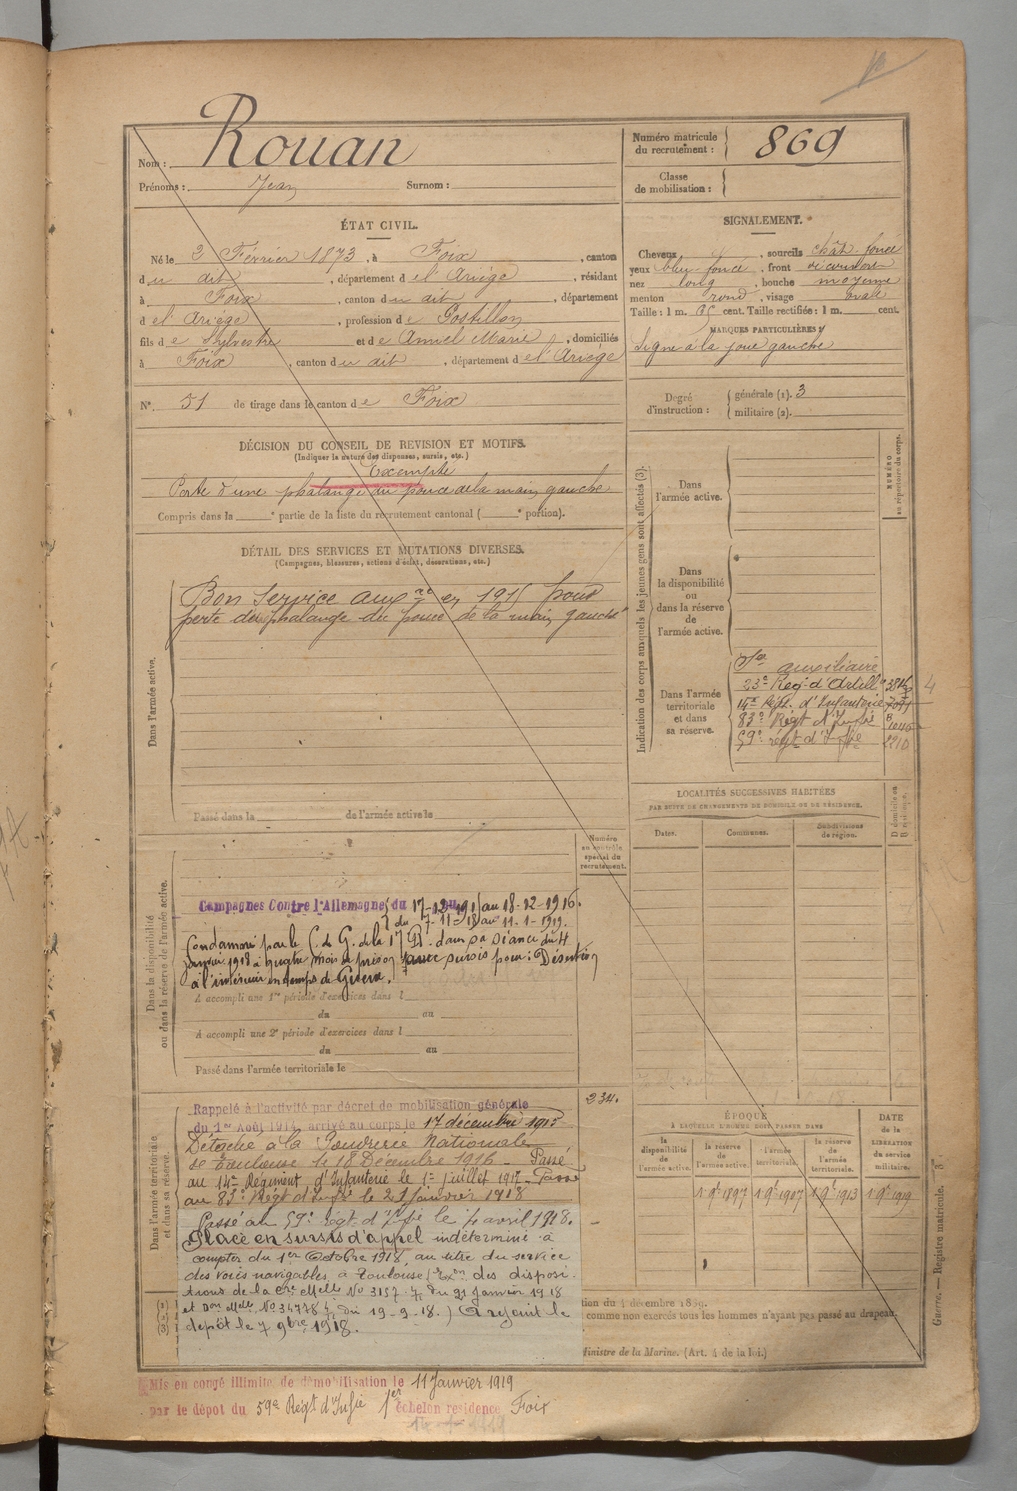 Nom : Rouan
Prénoms : Jean Surnom :
Numéro matricule du recrutement : 869
Classe de mobilisation :
ÉTAT CIVIL.
Né le 2 Février 1873, à Foix, canton
du dit, département de l'Ariège, résidant
à Foix, canton du dit, département
de l'Ariège, profession de Postillon
fils de Sylvestre et de Amiel Marie, domiciliés
à Foix, canton du dit, département de l'Ariège
N° 51 de tirage dans le canton de Foix
SIGNALEMENT.
Cheveux, sourcils chât. foncé
yeux bleu foncé, front découvert
nez long, bouche moyenne
menton rond, visage ovale
Taille : 1 m. cent. Taille rectifiée : 1 m. cent.
MARQUES PARTICULIÈRES :
Signe à la joue gauche
Degré d'instruction : générale (1). 3
militaire (2).
DÉCISION DU CONSEIL DE REVISION ET MOTIFS.
(Indiquer la nature des dispenses, sursis, etc.)
Exempté
Perte d'une phalange du pouce de la main gauche
Compris dans la e partie de la liste du recrutement cantonal ( e portion).
DÉTAIL DES SERVICES ET MUTATIONS DIVERSES.
(Campagnes, blessures, actions d'éclat, décorations, etc.)
Dans l'armée active.
Bon Service aux re en 1915 pour
perte de phalange du pouce de la main gauche
Passé dans la de l'armée active le
Indication des corps auxquels les jeunes gens sont affectés (3).
NUMÉRO au répertoire du corps.
Dans l'armée active.
Dans la disponibilité ou dans la réserve de l'armée active.
Dans l'armée territoriale et dans sa réserve.
auxiliaire
23e Reg. d'Artill
14e Régt. d'Infanterie
83e Régt d'Infie
59e régt d'Infie 2210
LOCALITÉS SUCCESSIVES HABITÉES
PAR SUITE DE CHANGEMENTS DE DOMICILE OU DE RÉSIDENCE.
Dates. Communes. Subdivisions de région.
Numéro au contrôle spécial du recrutement.
Dans la disponibilité ou dans la réserve de l'armée active.
Campagnes Contre l'Allemagne du 17-12-1915 au 18-12-1916.
du 7-11-18 au 11-1-1919.
Condamné par le C. de G. de la 17e R. dans sa séance du 4
janvier 1918 à quatre mois de prison avec sursis pour : Désertion
à l'intérieur en temps de Guerre.
A accompli une 1re période d'exercices dans l
du au
A accompli une 2e période d'exercices dans l
du au
Passé dans l'armée territoriale le
Dans l'armée territoriale et dans sa réserve.
234.
Rappelé à l'activité par décret de mobilisation générale
du 1er Août 1914, arrivé au corps le 17 décembre 1915
Détaché à la Poudrerie Nationale
de Toulouse le 18 Décembre 1916 _ Passé
au 14e Régiment d'Infanterie le 1er juillet 1917 _ Passé
au 83e Régt d'Infie le 21 janvier 1918
Passé au 59e régt d'Infie le avril 1918.
Placé en sursis d'appel indéterminé à
compter du 1er Octobre 1918, au titre du service
des voies navigables, à Toulouse (Exon des disposi-
tions de la Cre Melle No 3157 du 21 janvier 1918
et Don Melle No 34778 du 19-9-18.) A rejoint le
dépôt le 7 9bre 1918.
ÉPOQUE
À LAQUELLE L'HOMME DOIT PASSER DANS
la disponibilité de l'armée active. la réserve de l'armée active. l'armée territoriale. la réserve de l'armée territoriale.
DATE de la LIBÉRATION du service militaire.
1 9bre 1897 1 9bre 1907 1 9bre 1913 1 9bre 1919
(1)
(2)
(3)
comme non exercés tous les hommes n'ayant pas passé au drapeau.
Ministre de la Marine. (Art. 4 de la loi.)
Guerre. — Registre matricule.
Mis en congé illimité de démobilisation le 11 Janvier 1919
par le dépôt du 59e Régt d'Infie 1er échelon résidence Foix